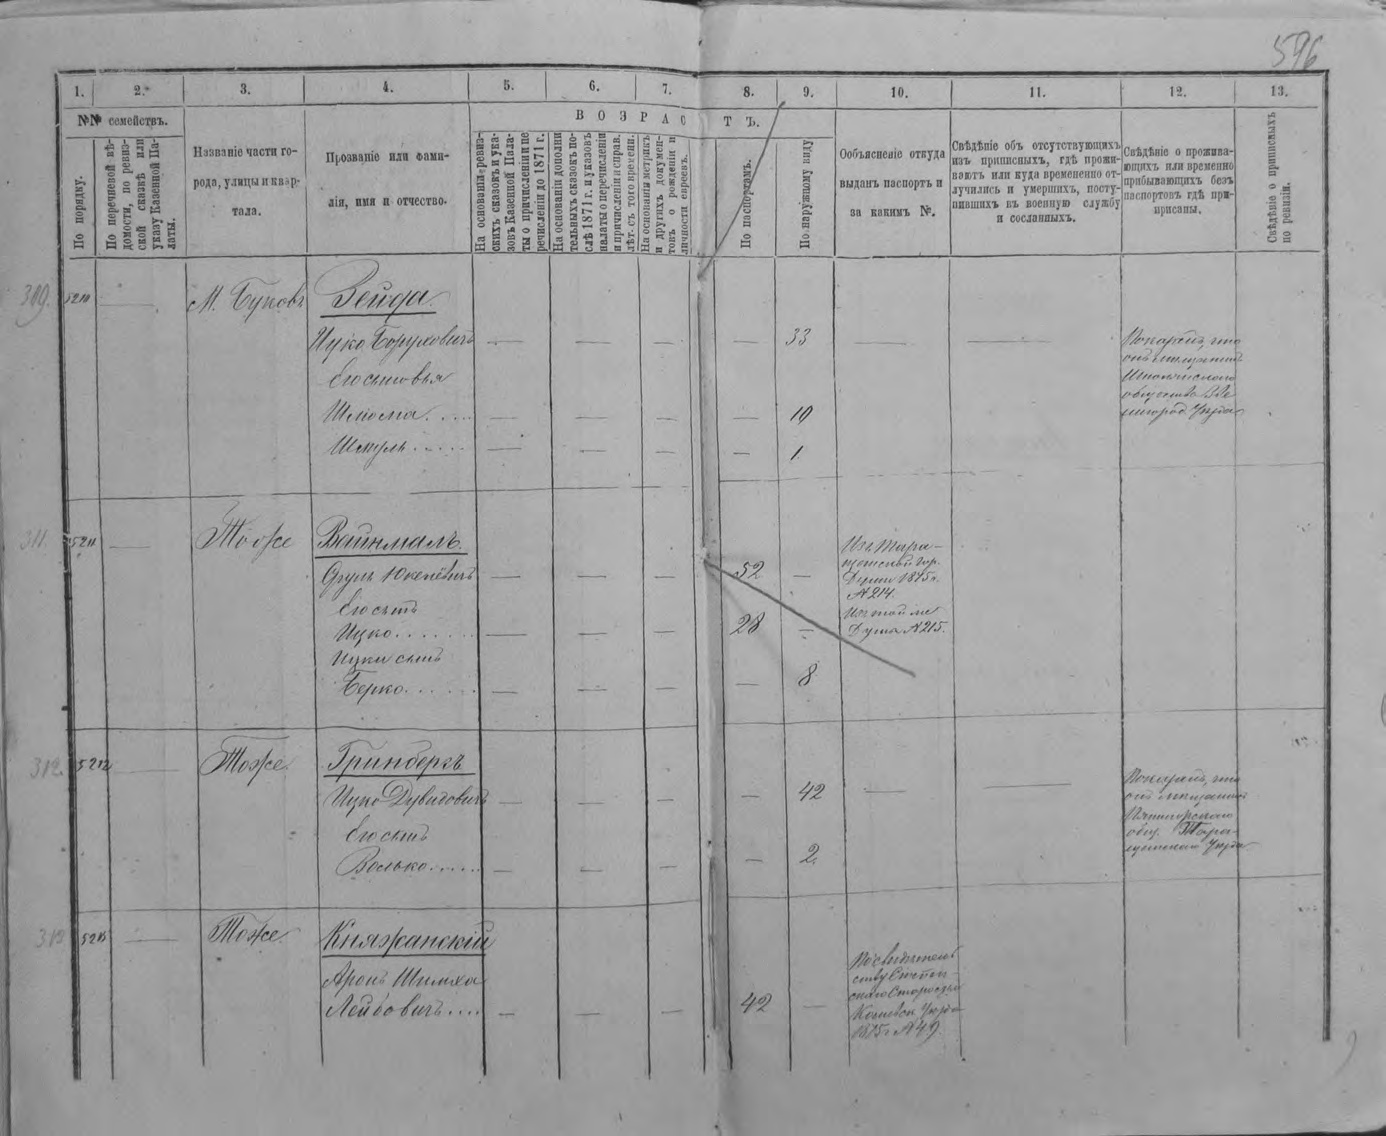 596
1. 2. 3. 4. 5. 6. 7. 8. 9. 10. 11. 12. 13.
№№ семействъ.
По порядку.
По перечневой вѣ-
домости, по ревиз-
ской сказкѣ или
указу Казенной Па-
латы.
Названіе части го-
рода, улицы и квар-
тала.
Прозваніе или фами-
лія, имя и отчество.
ВОЗРАСТЪ.
На основаніи ревиз-
скихъ сказокъ и ука-
зовъ Казенной Пала-
ты о причисленіи и пе
речисленіи до 1871 г.
На основаніи дополни
тельныхъ сказокъ по-
слѣ 1871 г. и указовъ
палаты о перечисленіи
и причисленіи и справ.
лѣт. съ того времени.
На основаніи метрикъ
и другихъ докумен-
товъ о рожденіи и
личности евреевъ.
По паспортамъ.
По наружному виду
Ообъясненіе откуда
выданъ паспортъ и
за какимъ №.
Свѣдѣніе объ отсутствующихъ
изъ приписныхъ, гдѣ прожи-
ваютъ или куда временно от-
лучились и умершихъ, посту-
пившихъ въ военную службу
и сосланныхъ.
Свѣдѣніе о прожива-
ющихъ или временно
прибывающихъ безъ
паспортовъ гдѣ при-
писаны.
Свѣдѣніе о приписныхъ
по ревизіи.
5210 — М. Буковъ Зейда
Ицко Боруховичъ — — — — 33 — —
Его сыновья
Шлома — — — — 10
Шмуль — — — — 1
Показалъ, что
онъ мещанинъ
общества Зве
нигород. Уѣзда
311. 5211 — Тоже Вайнманъ.
Сруль — — — 52 —
Его сынъ
Ицко — — — 28 —
Ицки сынъ
Берко — — — — 8
Изъ Тара-
щанской гор.
Думы 1875 г.
№ 214.
Изъ той же
Думы № 215.
312. 5212 — Тоже Гринбергъ
Ицко Дувидовичъ — — — — 42 — —
Его сынъ
Волько — — — — 2
Показалъ, что
онъ мещанинъ
Пятигорскаго
общ. Тара-
щанскаго Уѣзда
— Тоже Княжанскій
Аронъ Шимха
Лейбовичъ — — — 42 —
По свидѣтель
ству
Староства
Уѣзда
1875 г № 49